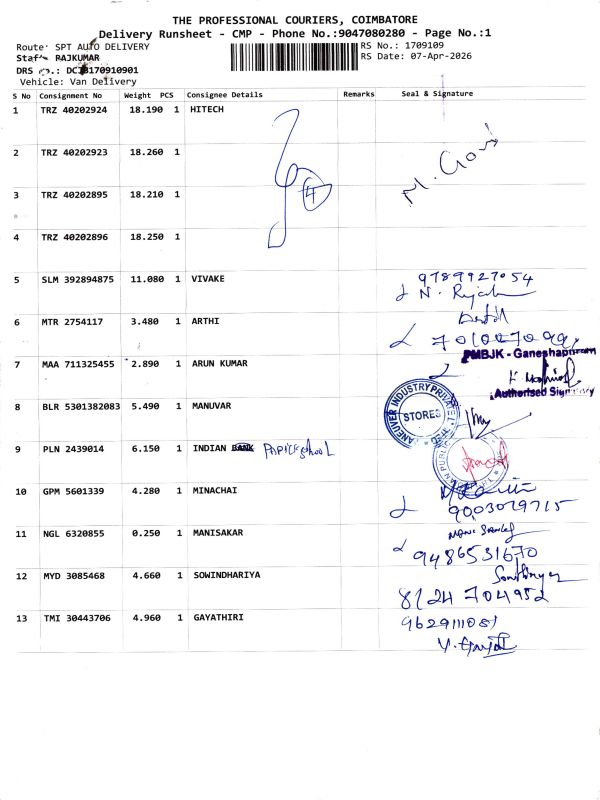 THE PROFESSIONAL COURIERS, COIMBATORE
Delivery Runsheet - CMP - Phone No.:9047080280 - Page No.:1
Route: SPT AUTO DELIVERY
RS No.: 1709109
Staff: RAJKUMAR
RS Date: 07-Apr-2026
DRS No.:
Vehicle: Van Delivery
S No Consignment No Weight PCS Consignee Details Remarks Seal & Signature
1 TRZ 40202924 18.190 1 HITECH
2 TRZ 40202923 18.260 1
4
M.
3 TRZ 40202895 18.210 1
4 TRZ 40202896 18.250 1
5 SLM 392894875 11.080 1 VIVAKE 9789927054
N.
6 MTR 2754117 3.480 1 ARTHI
PMBJK - Ganeshapuram
7 MAA 711325455 2.890 1 ARUN KUMAR
Authorised Signatory
8 BLR 5301382083 5.490 1 MANUVAR
STORES
9 PLN 2439014 6.150 1 INDIAN BANK
10 GPM 5601339 4.280 1 MINACHAI
9003029715
11 NGL 6320855 0.250 1 MANISAKAR
9486531670
12 MYD 3085468 4.660 1 SOWINDHARIYA
8124704952
13 TMI 30443706 4.960 1 GAYATHIRI 9629111081